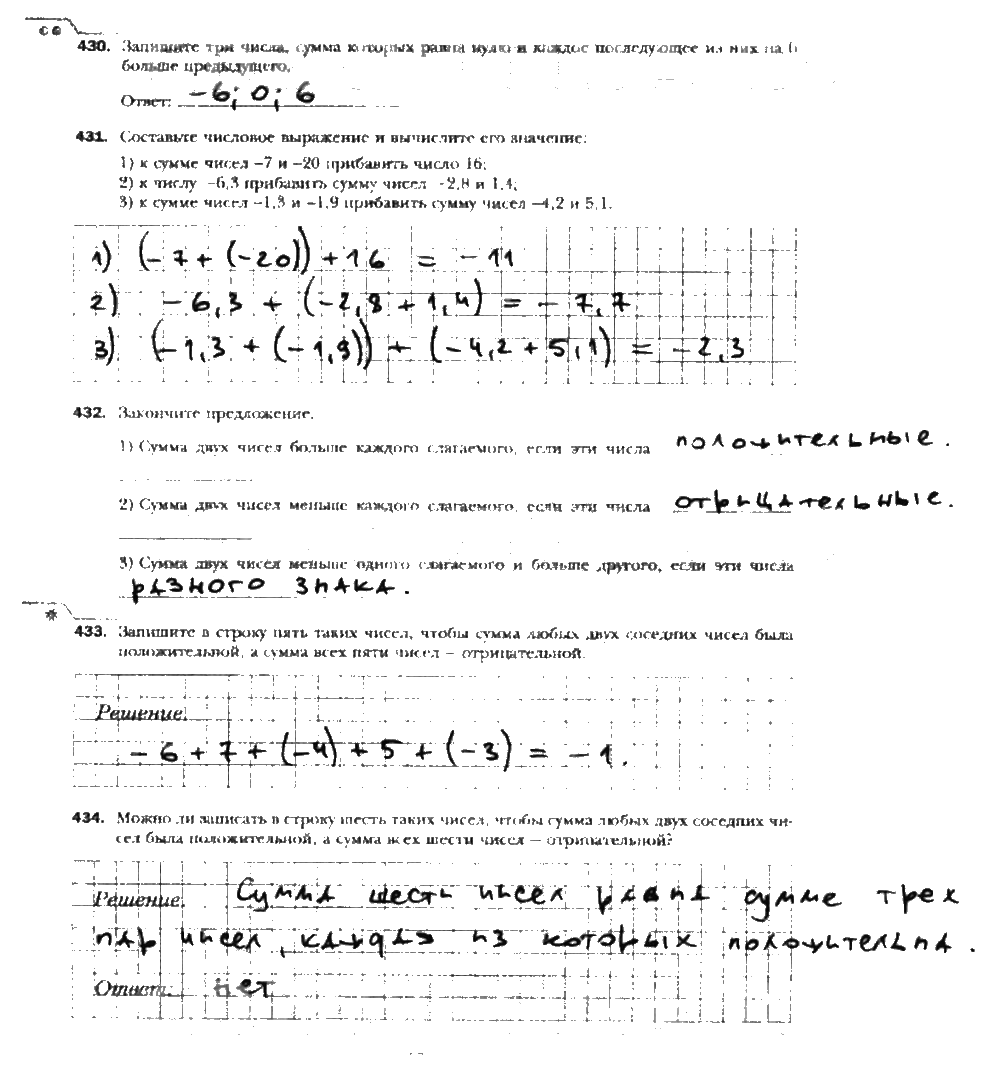 430. Запишите три числа, сумма которых равна нулю и каждое последующее из них на 6
больше предыдущего.
Ответ: -6; 0; 6
431. Составьте числовое выражение и вычислите его значение:
1) к сумме чисел –7 и –20 прибавить число 16;
2) к числу –6,3 прибавить сумму чисел –2,8 и 1,4;
3) к сумме чисел –1,3 и –1,9 прибавить сумму чисел –4,2 и 5,1.
1) (-7 + (-20)) + 16 = -11
2) -6,3 + (-2,8 + 1,4) = -7,7
3) (-1,3 + (-1,9)) + (-4,2 + 5,1) = -2,3
432. Закончите предложение.
1) Сумма двух чисел больше каждого слагаемого, если эти числа положительные.
2) Сумма двух чисел меньше каждого слагаемого, если эти числа отрицательные.
3) Сумма двух чисел меньше одного слагаемого и больше другого, если эти числа
разного знака.
*
433. Запишите в строку пять таких чисел, чтобы сумма любых двух соседних чисел была
положительной, а сумма всех пяти чисел – отрицательной.
Решение.
-6 + 7 + (-4) + 5 + (-3) = -1.
434. Можно ли записать в строку шесть таких чисел, чтобы сумма любых двух соседних чи-
сел была положительной, а сумма всех шести чисел – отрицательной?
Решение. Сумма шесть чисел равна сумме трех
пар чисел, каждая из которых положительна.
Ответ: нет